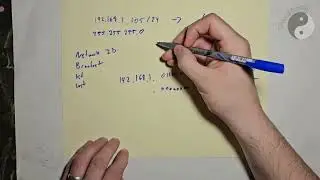 192.168.1.105/24 →
255.255.255.0
Network ID
Broadcast
1st
last
192.168.1.